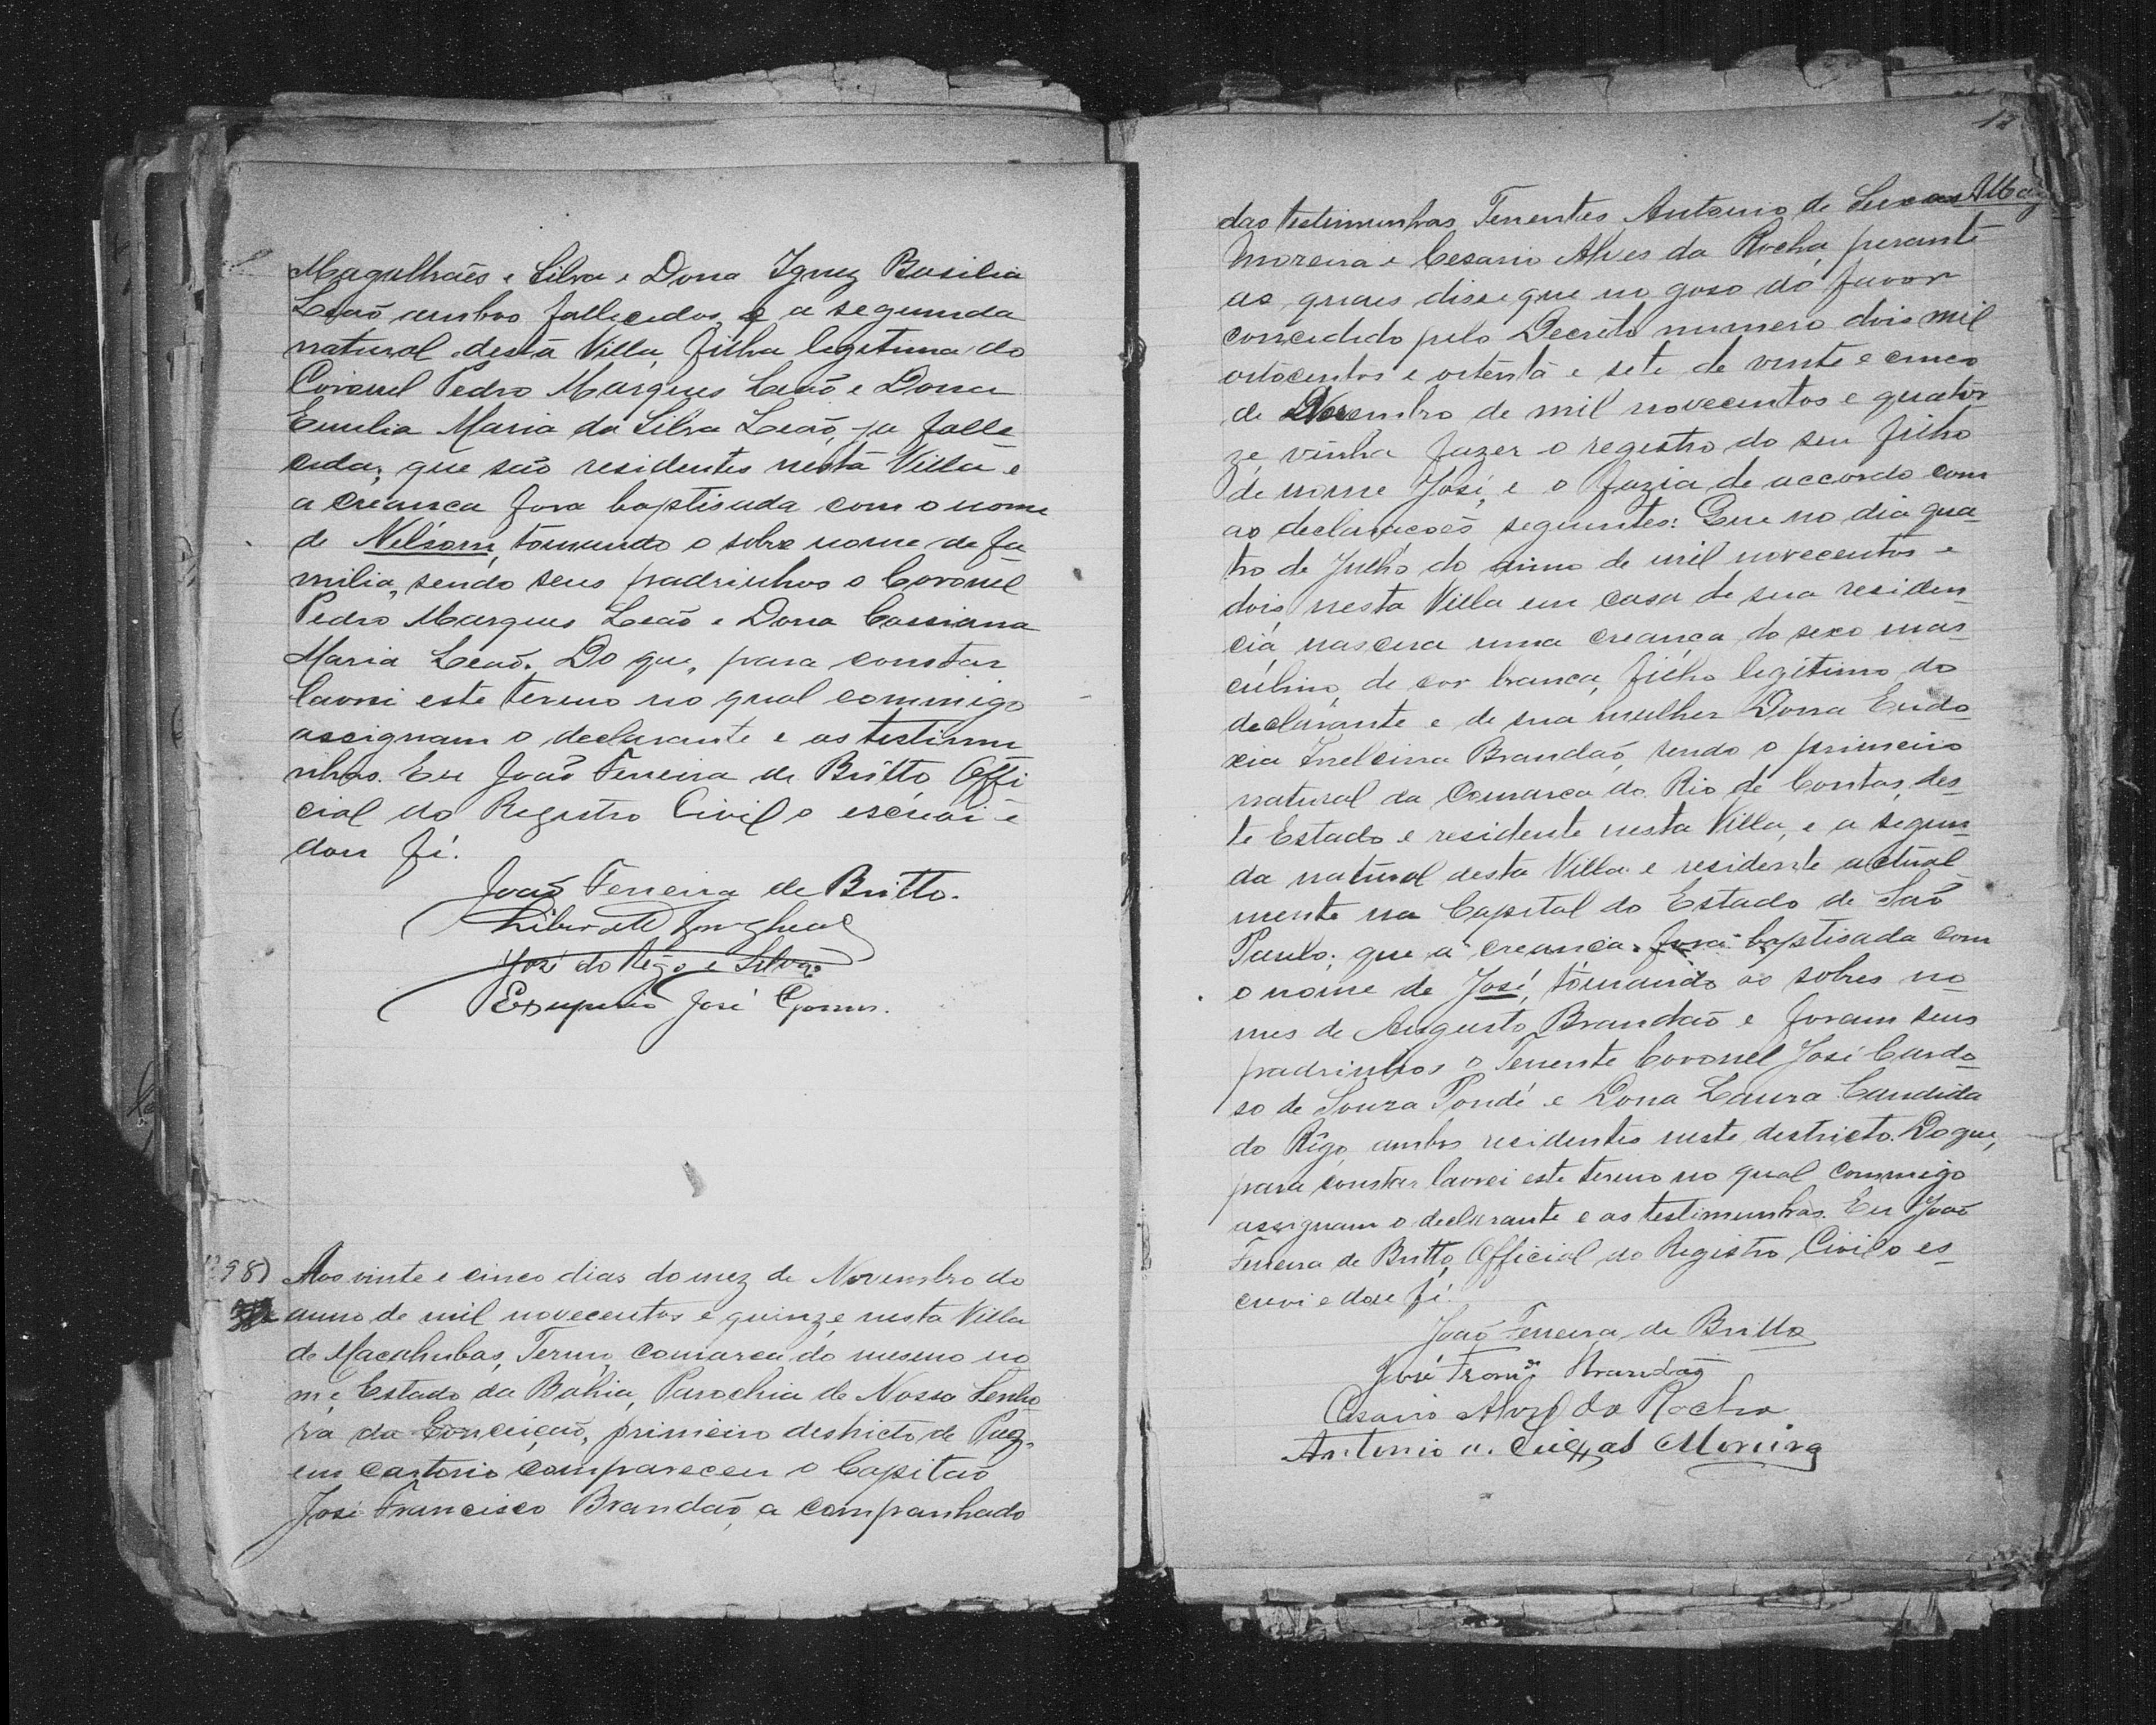 Magalhães e Silva e Dona Ignez Basilia
Leão ambos fallecidos, e a segunda
natural desta Villa, filha legitima do
Coronel Pedro Marques Leão e Dona
Emilia Maria da Silva Leão, ja falle-
cida; que são residentes nesta Villa e
a creança fora baptisada com o nome
de Nelsom, tomando o sobre nome de fa-
milia, sendo seus padrinhos o Coronel
Pedro Marques Leão e Dona Cassiana
Maria Leão. Do que, para constar
lavrei este termo no qual commigo
assignam o declarante e as testimu-
nhas. Eu João Ferreira de Britto, Offi-
cial do Registro Civil o escrevi e
dou fé.
João Ferreira de Britto.
José do Rêgo e Silva
Exuperio José Gomes.
98) Aos vinte e cinco dias do mez de Novembro do
anno de mil novecentos e quinze, nesta Villa
de Macahubas, Termo, comarca do mesmo no-
me, Estado da Bahia, Parochia de Nossa Senho-
ra da Conceição, primeiro destricto de Paz,
em cartorio compareceu o Capitão
José Francisco Brandão, a companhado
das testimunhas Tenentes Antonio de
Moreira e Cesario Alves da Rocha, perante
as quaes disse que no goso do favor
concedido pelo Decreto numero dois mil
oitocentos e oitenta e sete de vinte e cinco
de Novembro de mil novecentos e quator-
ze, vinha fazer o registro do seu filho
de nome José, e o fazia de accordo com
as declarações seguintes: Que no dia qua-
tro de Julho do anno de mil novecentos e
dois, nesta Villa em casa de sua residen-
cia nascera uma creança do sexo mas-
culino, de cor branca, filho legitimo do
declarante e de sua mulher Dona Eudo-
xia Brandão, sendo o primeiro
natural da Comarca do Rio de Contas, des-
te Estado e residente nesta Villa, e a segun-
da natural desta Villa e residente actual-
mente na Capital do Estado de São
Paulo; que a creança fora baptisada com
o nome de José, tomando os sobres no-
mes de Augusto Brandão e foram seus
padrinhos o Tenente Coronel José Cardo-
so de Souza Pondé e Dona Laura Candida
do Rêgo, ambos residentes neste destricto. Do que,
para constar lavrei este termo no qual commigo
assignam o declarante e as testimunhas. Eu João
Ferreira de Britto, Official do Registro Civil o es-
crevi e dou fé.
João Ferreira de Britto
José Franc.co Brandão
Cesario Alves da Rocha
Antonio Moreira